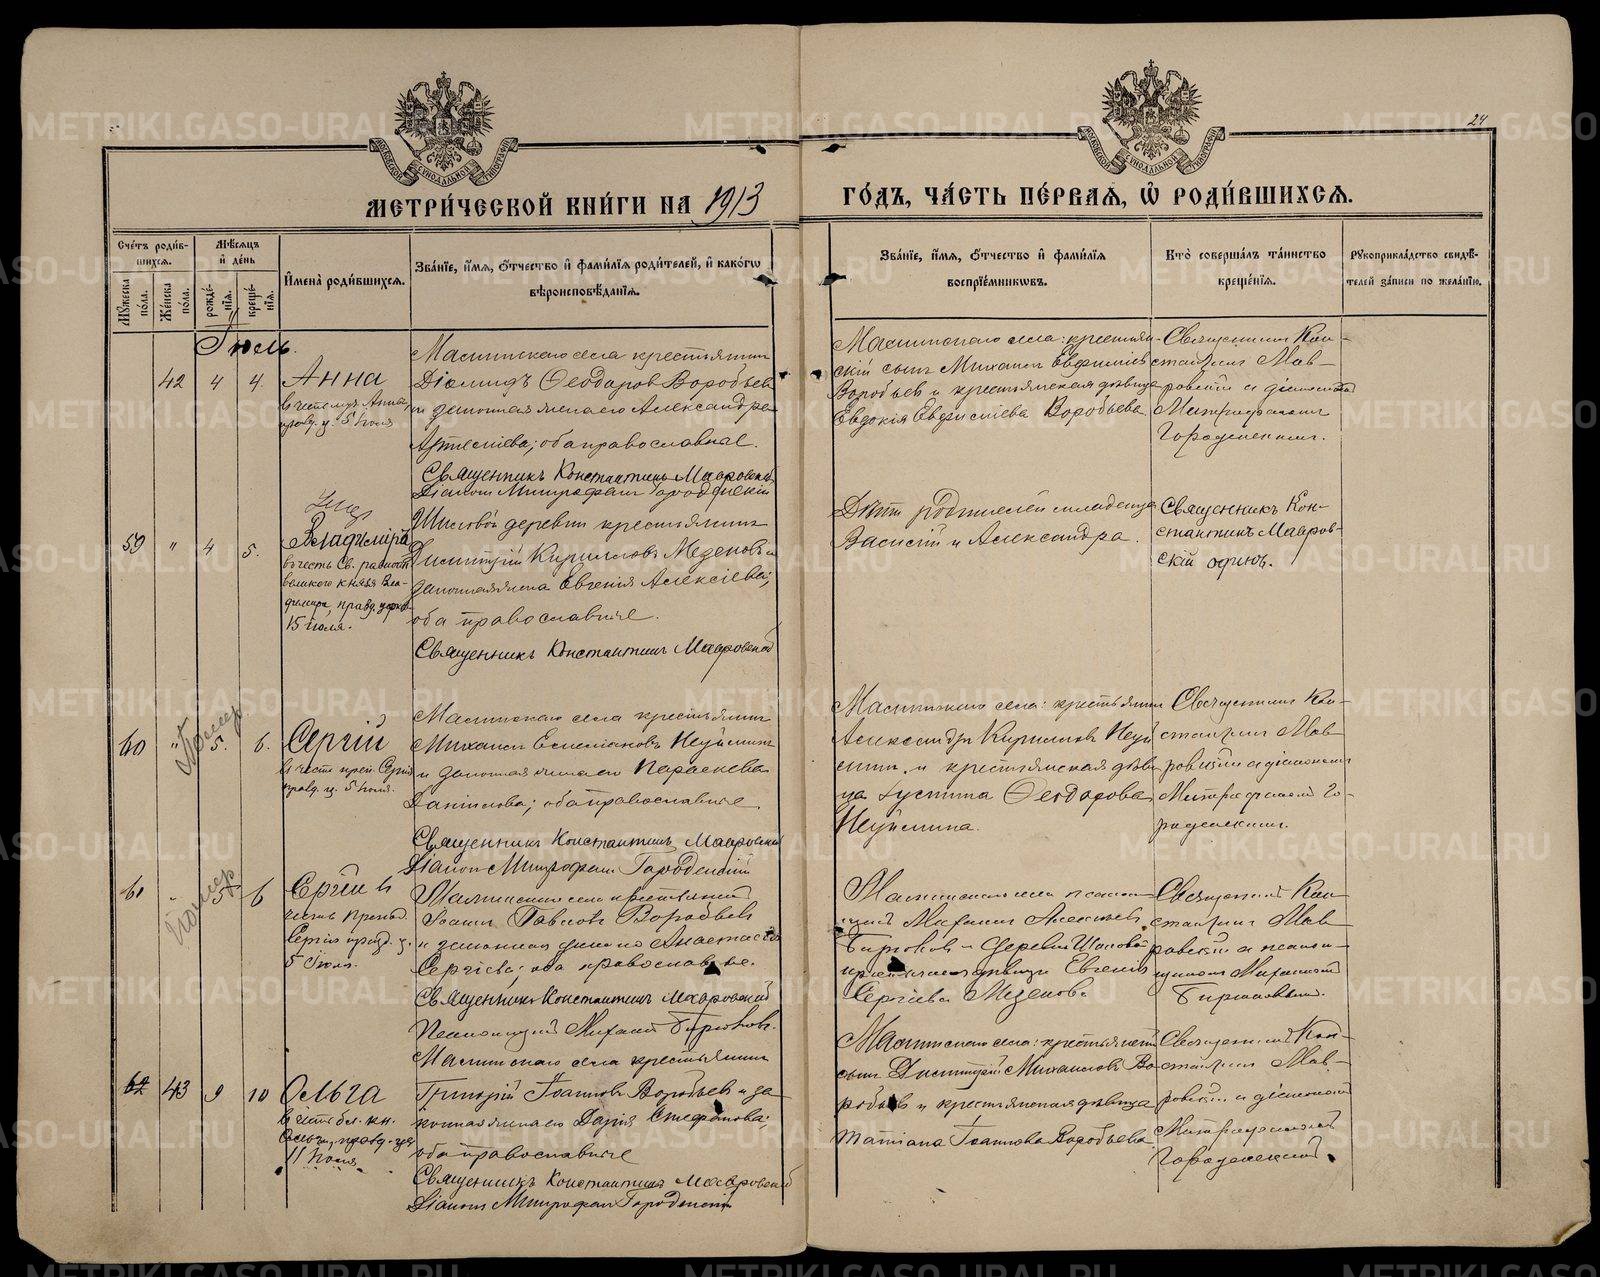 24
МЕТРИ́ЧЕСКОЙ КНИ́ГИ НА 1913 ГО́ДЪ, ЧА́СТЬ ПЕ́РВАЯ, Ѿ РОДИ́ВШИХСЯ.
Сче́тъ роди́вшихся.
Мꙋ́жеска по́ла.
Же́нска по́ла.
Мѣ́сяцъ и҆ де́нь
рожде́нїя.
креще́нїя.
И҆мена̀ роди́вшихся.
Зва́нїе, и҆́мя, ѻ҆́тчество и҆ фами́лїя роди́телей, и҆ како́гѡ вѣроисповѣ́данїя.
Зва́нїе, и҆́мя, ѻ҆́тчество и҆ фами́лїя воспрїе́мникѡвъ.
Кто̀ соверша́лъ та́инство креще́нїя.
Рꙋкоприкла́дство свидѣ́телей за́писи по жела́нїю.
Іюль.
42 4 4.
Анна
в честь муч. Анны,
празд. ц. 5 Іюля
крестьянинъ
Діомидъ Ѳеодоров Воробьев
и законная жена его Александра
Артеміева; оба православные.
Священникъ Константинъ Мавровский
Діаконъ Митрофанъ Городенскій
крестьян-
скій сынъ Михаилъ Евфиміев
Воробьев и крестьянская дѣвица
Евдокія Евфиміева Воробьева
Священник Кон-
стантин Мав-
ровский и діаконом
Митрофаном
Городенским.
59 " 4 5.
Умер
Владиміръ
в честь Св. равноап.
великого князя Вла-
диміра, празд. церков.
15 Іюля.
деревни крестьянинъ
Димитрій Кириллов Мезенов и
законная жена Евгенія Алексіева;
оба православные.
Священникъ Константинъ Мавровский
Дѣти родителей младенца
Василій и Александра.
Священникъ Кон-
стантинъ Мавров-
скій один.
60 " 5. 6.
Помер
Сергій
в честь преп. Сергія
празд. ц. 5 Іюля.
крестьянинъ
Михаил Емельянов Неуймин
и законная жена его Параскева
Данілова; оба православные.
Священникъ Константинъ Мавровский
Діакон Митрофан Городенский
Александр Кириллов Неуй
мин и крестьянская дѣви
ца Іустина Ѳеодорова
Неуймина.
Священник Кон-
стантин Мав-
ровский и діаконом
Митрофаном Го-
роденским.
61 " 5 6
Помер
Сергій в
честь Препод.
Сергія празд. ц.
5 Іюля.
Іоанн Павлов Воробьев
и законная жена его Анастасія
Сергіева; оба православные.
Священникъ Константинъ Мавровский
Псаломщикъ Михаил Бирюков.
Бирюков и деревни
дѣвица Евгенія
Сергіева Мезенова
Священник Кон-
стантин Мав-
ровский и псалом-
щиком Михаилом
Бирюковым.
62 43 9 10
Ольга
в честь бл. кн.
Ольги, празд. цер.
11 Іюля
крестьянинъ
Григорій Іоаннов Воробьев и за
конная жена его Дарія Стефанова;
оба православные
Священникъ Константинъ Мавровский
Діакон Митрофан Городенский
сын Димитрій Михаилов Во
робьев и крестьянская дѣвица
Татіана Іоаннова Воробьева
Священник Кон-
стантин Мав-
ровский и діаконом
Митрофаном
Городенский.
METRIKI.GASO-URAL.RU